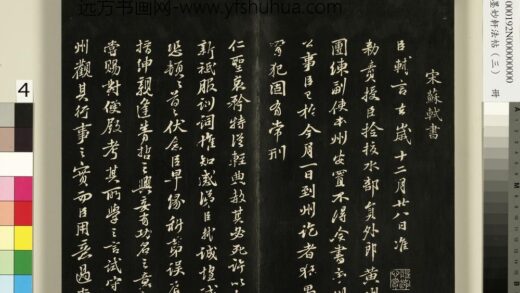 宋蘇軾書
臣軾言去歲十二月廿八日准
勅責授臣撿校水部員外郎黃
團練副使本州安置不得僉書
公事臣已於今月一日到州訖者狂愚
冒犯固有常刑
仁聖哀矜特從輕典赦其必死許以
新祗服訓詞惟知感涕臣軾誠惶誠
恐頓首頓首伏念臣早緣科第誤
搢紳親逢睿哲之興遂有功名之
嘗賜對便殿考其所學之言試守
州觀其行事之實而臣用意過
远方书画网-www.yfshuhua.com
墨妙軒法帖(三) 冊
000192N000000000
4